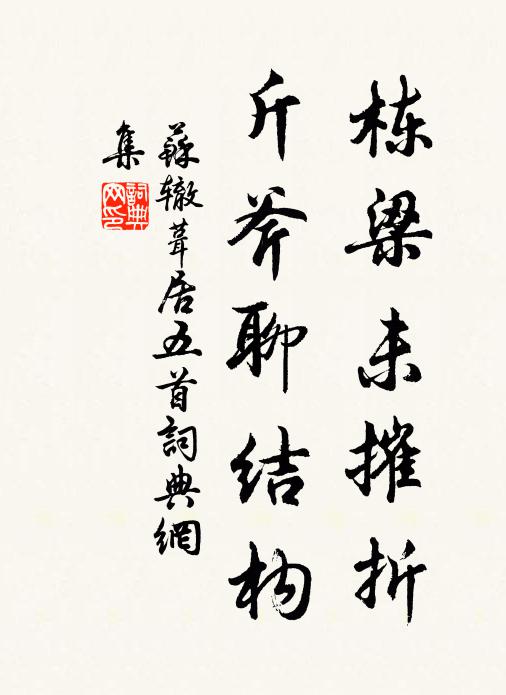 栋梁未摧折
斤斧聊结构
蘇辙葺居五首詞典網
集
詞典
网印